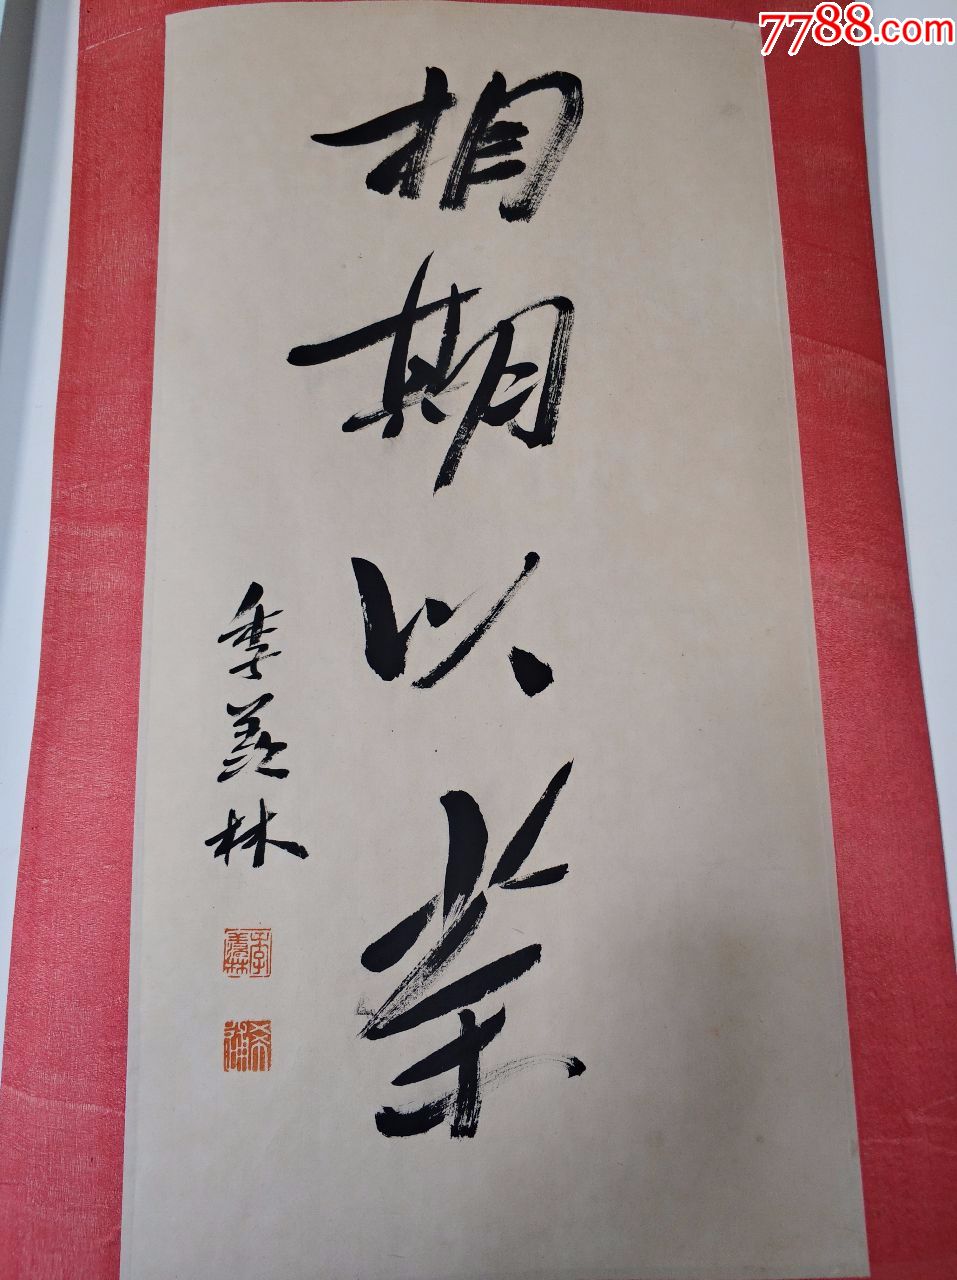 7788.com
相期以茶
季羡林
季羡林